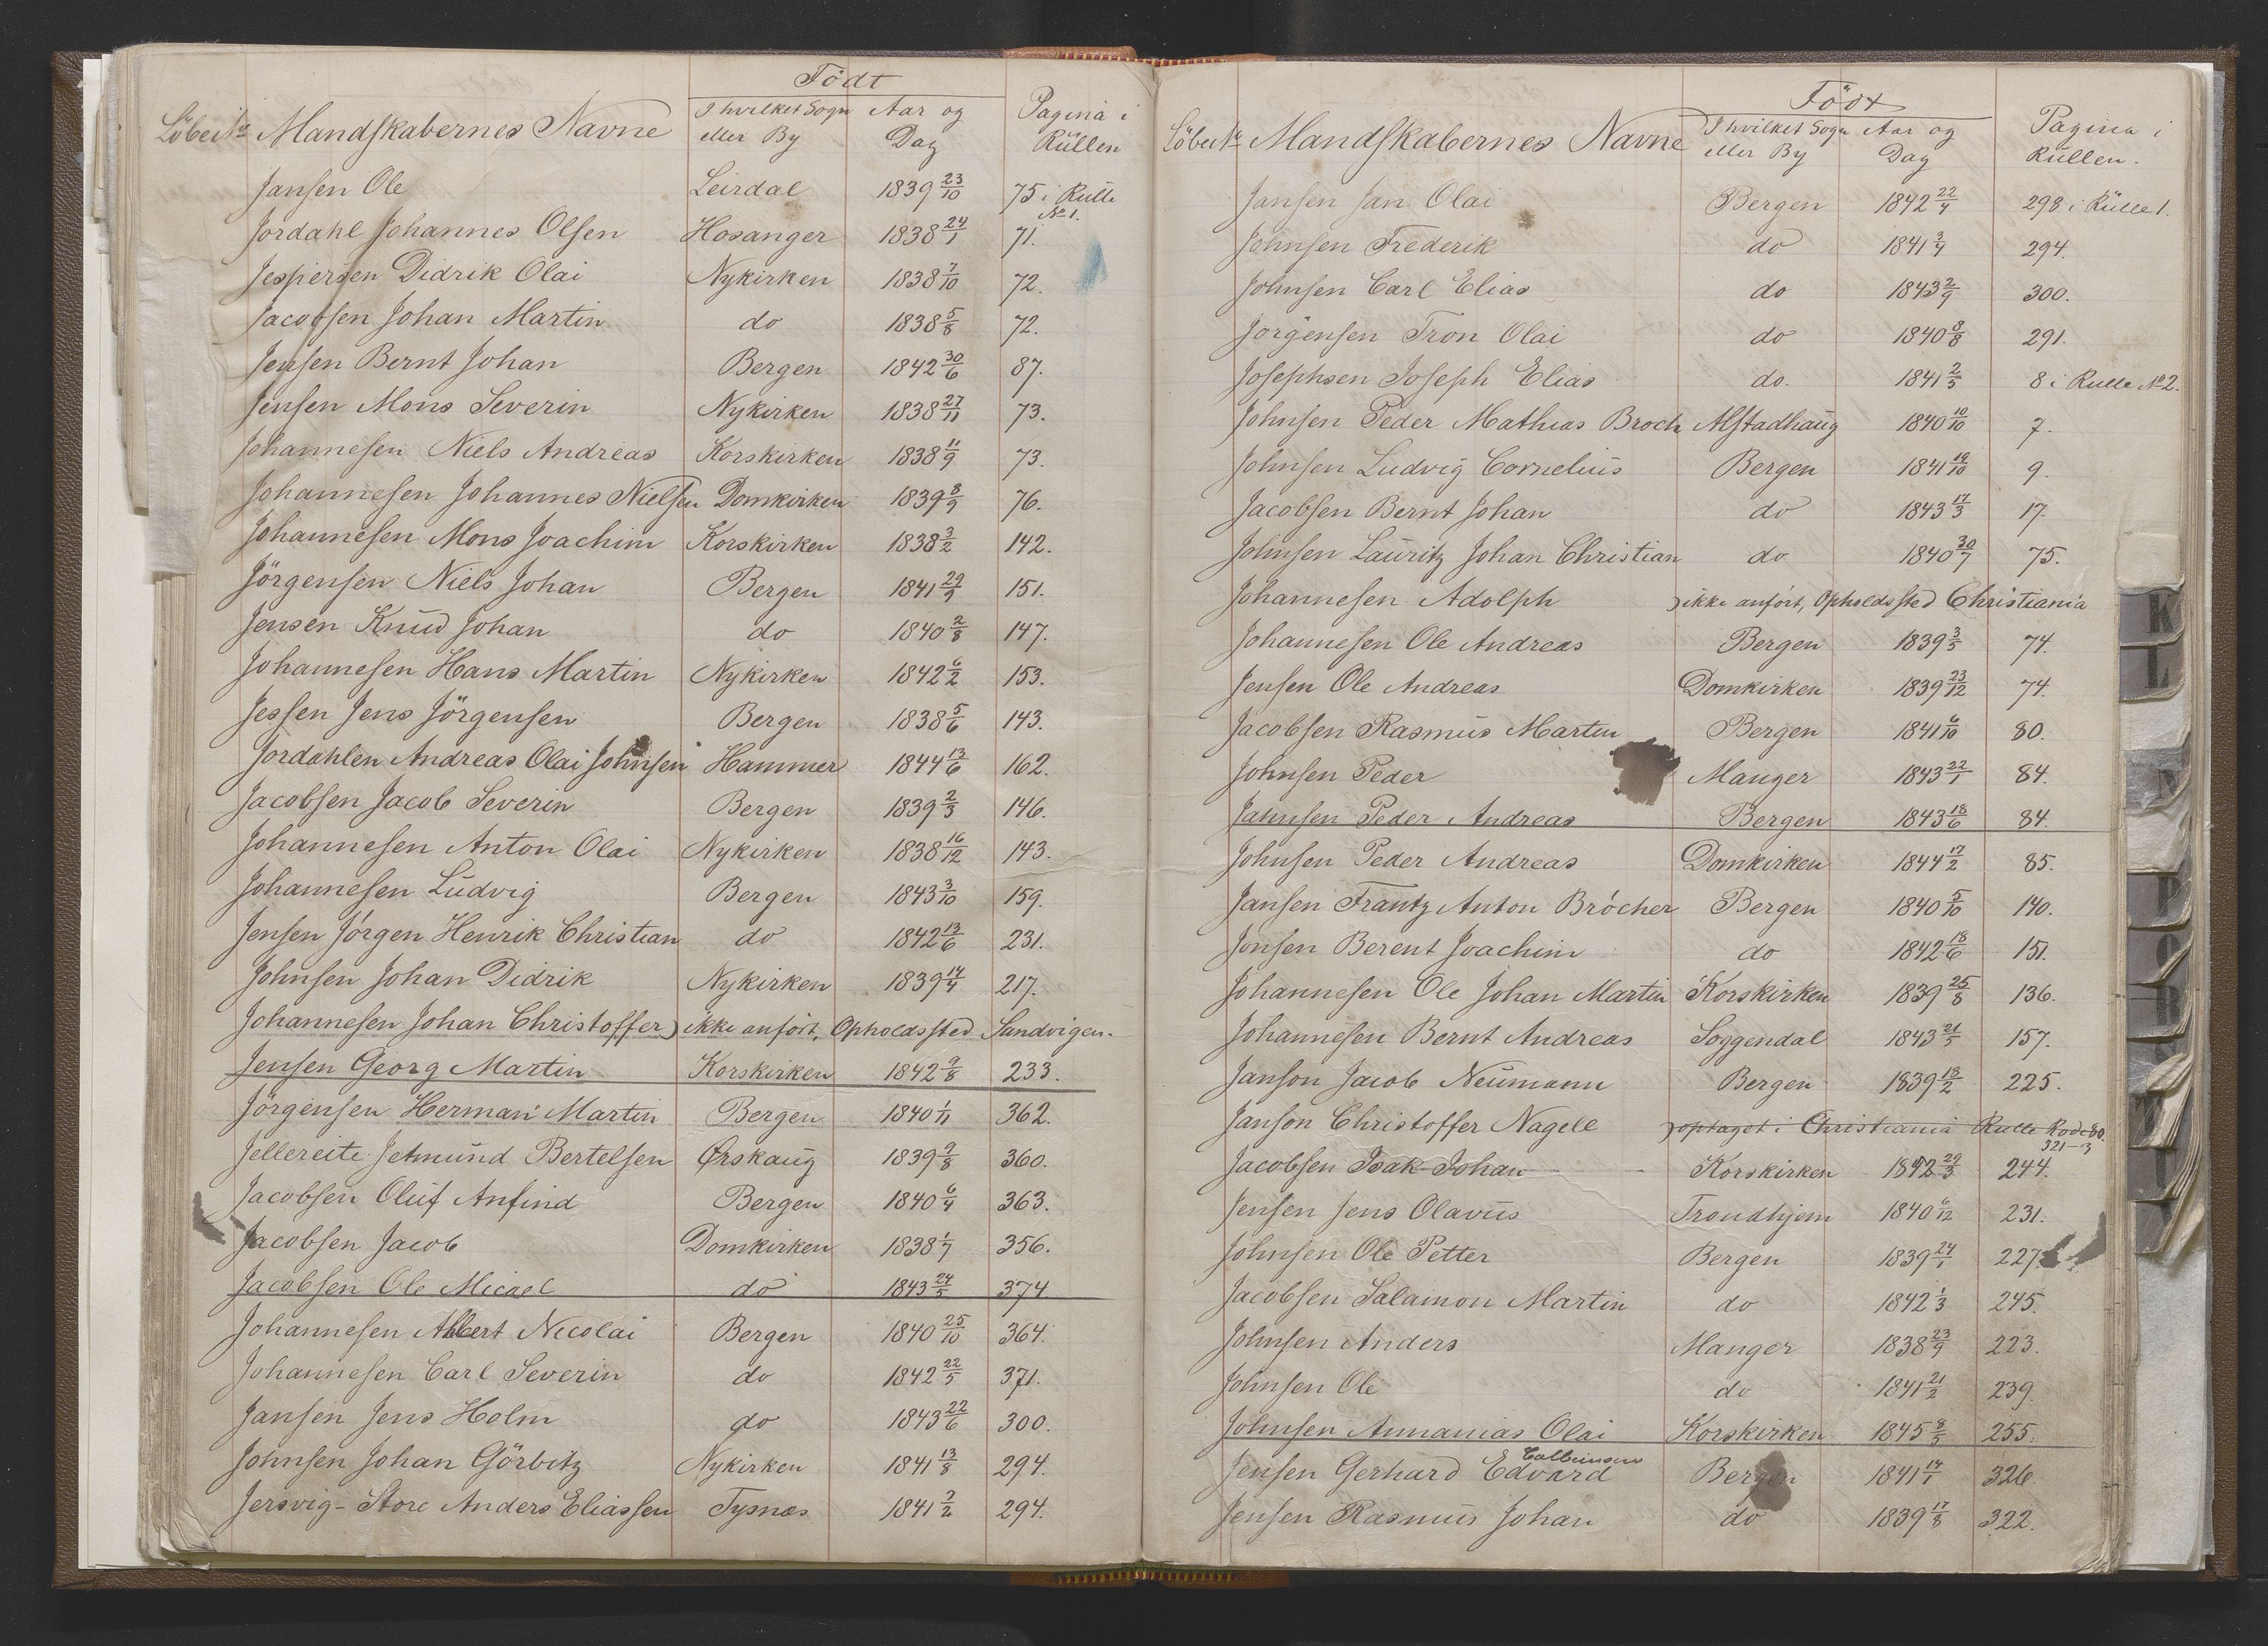 Födt
Löbe No Mandskabernes Navne I hvilket Sogn eller By Aar og Dag Pagina i Rüllen
Jansen Ole Leirdal 1839 23/10 75 i Rulle No 1.
Jordahl Johannes Olsen Hosanger 1838 24/1 71.
Jespersen Didrik Olai Nykirken 1838 7/10 72.
Jacobsen Johan Martin do 1838 5/8 72.
Jensen Bernt Johan Bergen 1842 30/6 87.
Jensen Mons Severin Nykirken 1838 27/11 73.
Johannesen Niels Andreas Korskirken 1838 11/9 73.
Johannesen Johannes Nielsen Domkirken 1839 8/9 76.
Johannesen Mons Joachim Korskirken 1838 3/2 142.
Jörgensen Niels Johan Bergen 1841 29/9 151.
Jensen Knud Johan do 1840 2/8 147.
Johannesen Hans Martin Nykirken 1842 6/2 153.
Jessen Jens Jörgensen Bergen 1838 5/6 143.
Jordahlen Andreas Olai Johnsen Hammer 1844 13/6 162.
Jacobsen Jacob Severin Bergen 1839 2/3 146.
Johannesen Anton Olai Nykirken 1838 16/12 143.
Johannesen Ludvig Bergen 1843 3/10 159.
Jensen Jörgen Henrik Christian do 1842 13/6 231.
Johnsen Johan Didrik Nykirken 1839 14/4 217.
Johannesen Johan Christoffer) ikke anfört, Opholdssted Sandvigen.
Jensen Georg Martin Korskirken 1842 9/8 233.
Jörgensen Herman Martin Bergen 1840 1/11 362.
Jellereite Jetmund Bertelsen Ørskaug 1839 9/8 360.
Jacobsen Oluf Anfind Bergen 1840 6/4 363.
Jacobsen Jacob Domkirken 1838 1/7 356.
Jacobsen Ole Micael do 1843 24/5 374
Johannesen Albert Nicolai Bergen 1840 25/10 364.
Johannesen Carl Severin do 1842 22/5 371.
Jansen Jens Holm do 1843 22/6 300.
Johnsen Johan Görbitz Nykirken 1841 13/8 294.
Jersvig-Store Anders Eliassen Tysnæs 1841 7/2 294.
Födt
Löbe No Mandskabernes Navne I hvilket Sogn eller By Aar og Dag Pagina i Rüllen.
Jansen Jan Olai Bergen 1842 22/4 298 i Rülle 1.
Johnsen Frederik do 1841 3/4 294.
Johnsen Carl Elias do 1843 2/9 300.
Jörgensen Tron Olai do 1840 8/8 291.
Josephsen Joseph Elias do. 1841 2/5 8 i Rulle No 2.
Johnsen Peder Mathias Broch Alstadhaug 1840 10/10 7.
Johnsen Ludvig Cornelius Bergen 1841 19/10 9.
Jacobsen Bernt Johan do 1843 17/3 17.
Johnsen Lauritz Johan Christian do 1840 30/7 75.
Johannesen Adolph ) ikke anfört, Opholdssted Christiania
Johannesen Ole Andreas Bergen 1839 3/5 74.
Jensen Ole Andreas Domkirken 1839 23/12 74.
Jacobsen Rasmus Martin Bergen 1841 6/10 80.
Johnsen Peder Manger 1843 22/1 84.
Jahnsen Peder Andreas Bergen 1843 18/6 84.
Johnsen Peder Andreas Domkirken 1844 17/2 85.
Jansen Frantz Anton Bröcher Bergen 1840 5/10 140.
Jonsen Berent Joachim do 1842 18/6 151.
Johannesen Ole Johan Martin Korskirken 1839 25/8 136.
Johannesen Bernt Andreas Soggendal 1843 21/5 157.
Janson Jacob Neumann Bergen 1839 13/2 225.
Janson Christoffer Nagell ) optaget i Christiania Rulle Rode 80. 321-3
Jacobsen Isak Johan Korskirken 1842 29/3 244.
Jensen Jens Olavus Trondhjem 1840 6/12 231.
Johnsen Ole Petter Bergen 1839 24/1 227
Jacobsen Salamon Martin do 1842 1/3 245.
Johnsen Anders Manger 1838 23/9 223.
Johnsen Ole do 1841 21/2 239.
Johnsen Annanias Olai Korskirken 1845 8/5 255.
Jensen Gerhard Edvard Bergen 1841 14/1 326.
Jensen Rasmus Johan do 1839 17/8 322.
K
L
N
P
R
T